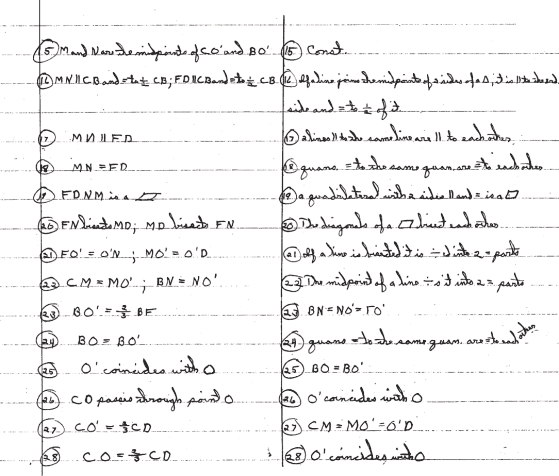 (15) M and N are the midpoints of CO' and BO' (15) Const.
(16) MN || CB and = to ½ CB; FD || CB and = to ½ CB (16) If a line joins the midpoints of 2 sides of a Δ, it is || to the 3rd
side and = to ½ of it
(17) MN || FD (17) 2 lines || to the same line are || to each other
(18) MN = FD (18) quans. = to the same quan. are = to each other
(19) FDNM is a ▱ (19) a quadrilateral with 2 sides || and = is a ▱
(20) FN bisects MD; MD bisects FN (20) The diagonals of a ▱ bisect each other
(21) FO' = O'N; MO' = O'D (21) If a line is bisected it is ÷d into 2 = parts
(22) CM = MO'; BN = NO' (22) The midpoint of a line ÷s it into 2 = parts
(23) BO' = ⅔ BF (23) BN = NO' = FO'
(24) BO = BO' (24) quans = to the same quan. are = to each other
(25) O' coincides with O (25) BO = BO'
(26) CD passes through point O (26) O' coincides with O
(27) CO' = ⅔ CD (27) CM = MO' = O'D
(28) CO = ⅔ CD (28) O' coincides with O